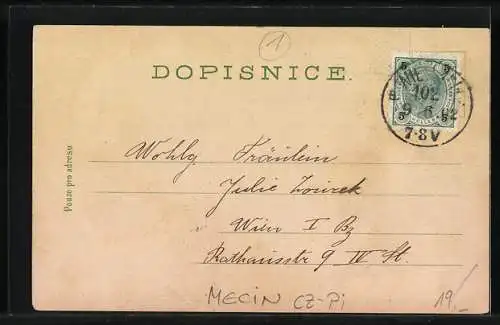 1
DOPISNICE.
102
9 6 02
7-8V
Pouze pro adresu
Wohlg Fräulein
Julie Zourek
Wien I Bz
Rathausstr 9 IV St.
MECIN CZ-Pi
19,-